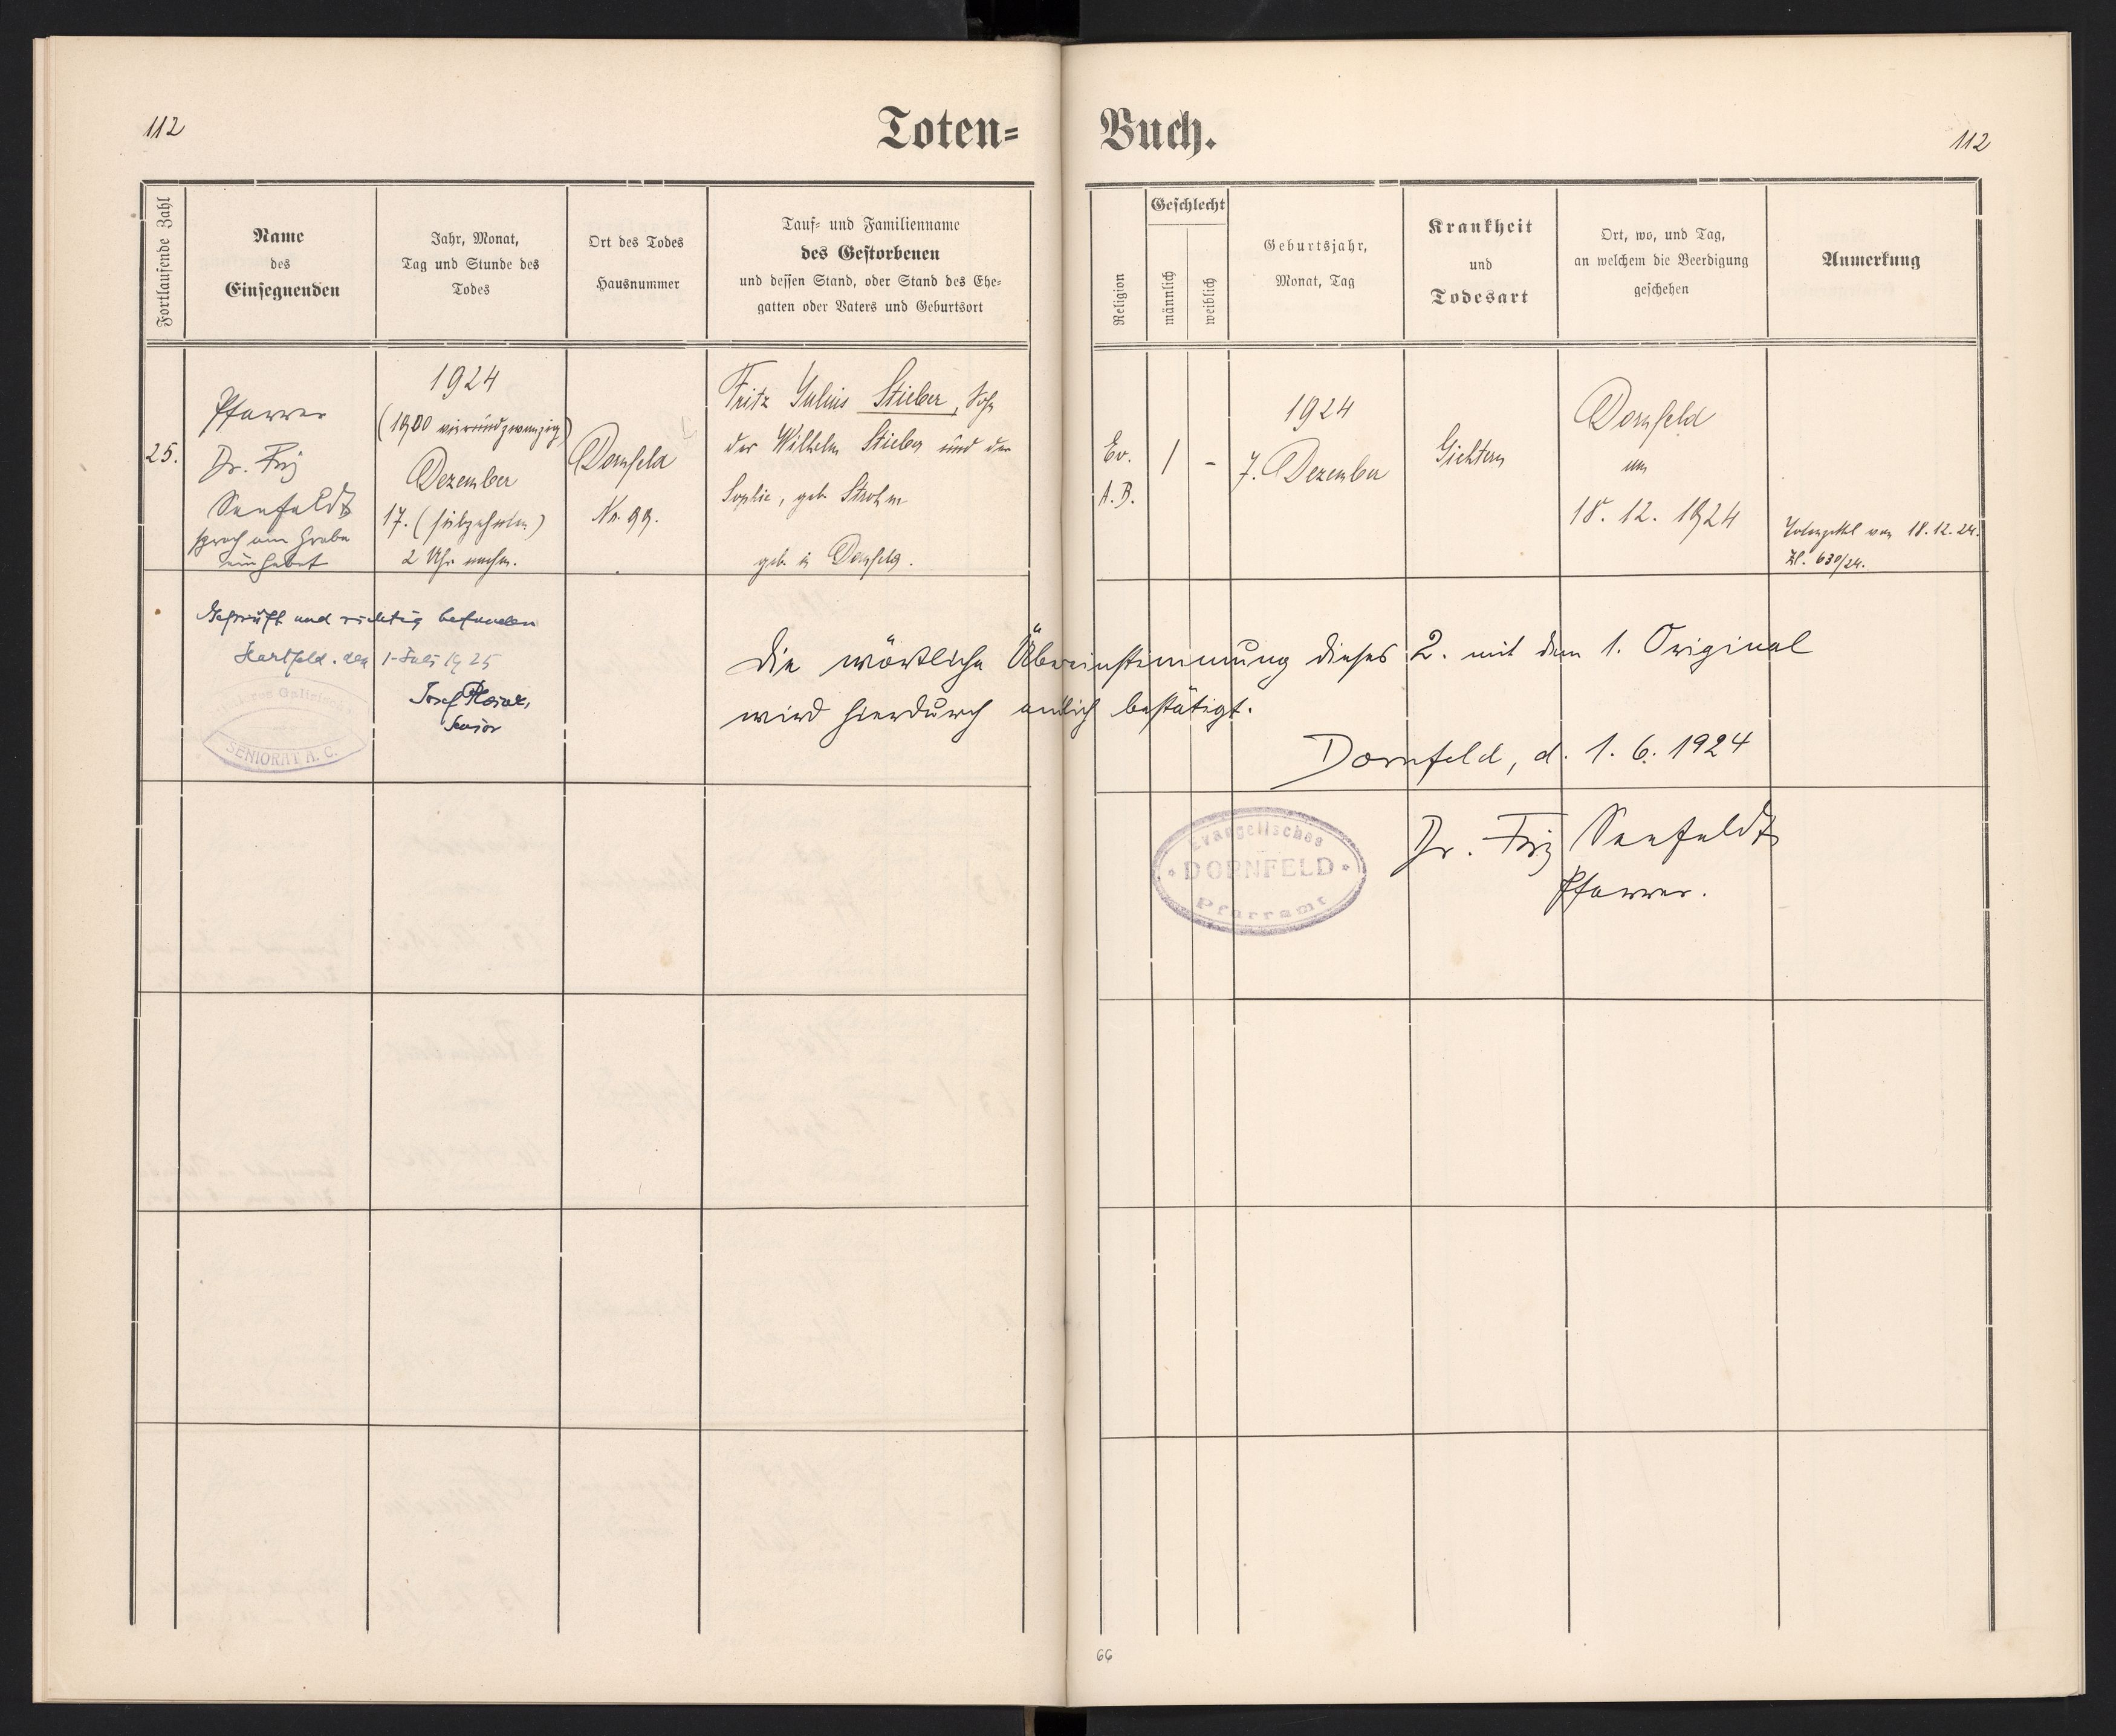 112
Toten=
Buch.
112
Fortlaufende Zahl
Name
des
Einsegnenden
Jahr, Monat,
Tag und Stunde des
Todes
Ort des Todes
Hausnummer
Tauf= und Familienname
des Gestorbenen
und dessen Stand, oder Stand des Ehe=
gatten oder Vaters und Geburtsort
Religion
Geschlecht
männlich
weiblich
Geburtsjahr,
Monat, Tag
Krankheit
und
Todesart
Ort, wo, und Tag,
an welchem die Beerdigung
geschehen
Anmerkung
25.
Pfarrer
Dr. Fritz
Seefeldt
sprach am Grabe
ein Gebet
1924
(1900 vierundzwanzig)
Dezember
17. (siebzehnten)
2 Uhr nachm.
Dornfeld
Nr. 99.
Fritz Julius Stieber, Sohn
des Wilhelm Stieber und der
Sophie, geb. Strohm
geb. in Dornfeld.
Ev.
A. B.
/
-
1924
7. Dezember
Gichtern
Dornfeld
am
18. 12. 1924
Totenzettel vom 18.12.24.
Zl. 630/24.
Geprüft und richtig befunden
Hartfeld. den 1. Juli 1925
Josef
Senior
SENIORAT A. C.
Die wörtliche Übereinstimmung dieses 2. mit dem 1. Original
wird hierdurch amtlich bestätigt.
Dornfeld, d. 1. 6. 1924
Evangelisches
DORNFELD
Pfarramt
Dr. Fritz Seefeldt
Pfarrer.
66